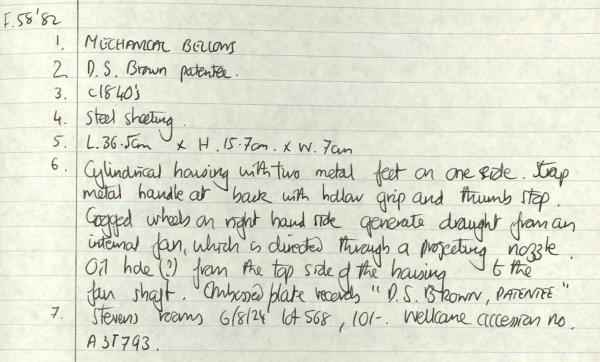 F.58'82
1. MECHANICAL BELLOWS
2 D.S. Brown patentee.
3. c1840's
4. Steel sheeting.
5. L.36.5cm x H.15.7cm. x W.7cm
6. Cylindrical housing with two metal feet on one side. Strap
metal handle at back with hollow grip and thumb stop.
Cogged wheels on right hand side generate draught from an
internal fan, which is directed through a projecting nozzle.
Oil hole (?) from the top side of the housing to the
fan shaft. Embossed plate records "D.S. BROWN, PATENTEE"
7. Stevens rooms 6/8/24 lot 568, 10/-. Wellcome accession no.
A 37793.